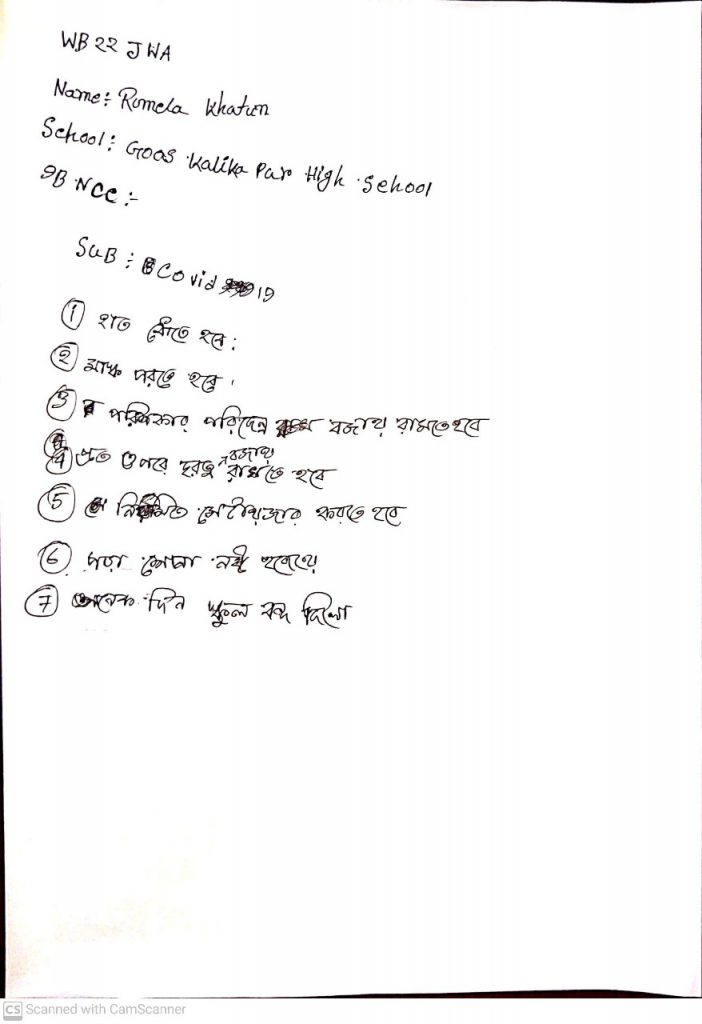 WB 22 JWA
Name: Romela Khatun
School: Goas Kalika Par High School
9B NCC :-
SUB : Covid 19
① হাত ধোঁতে হবে :
② মাস্ক পরতে হবে ।
③ পরিষ্কার পরিছেন্ন বজায় রাখতে হবে
④ ওপরে দূরত্ব বজায় রাখতে হবে
⑤ নিয়মিত করতে হবে
⑥ পড়া শোনা নষ্ট হয়েছে
⑦ অনেক দিন স্কুল বন্দ ছিলো
CS Scanned with CamScanner